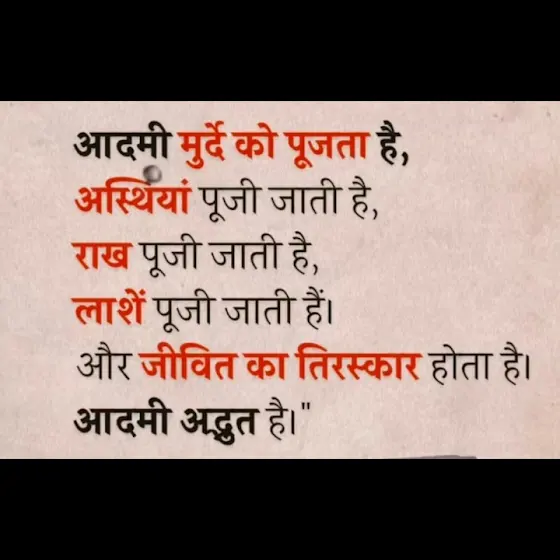 आदमी मुर्दे को पूजता है,
अस्थियां पूजी जाती है,
राख पूजी जाती है,
लाशें पूजी जाती हैं।
और जीवित का तिरस्कार होता है।
आदमी अद्भुत है।"